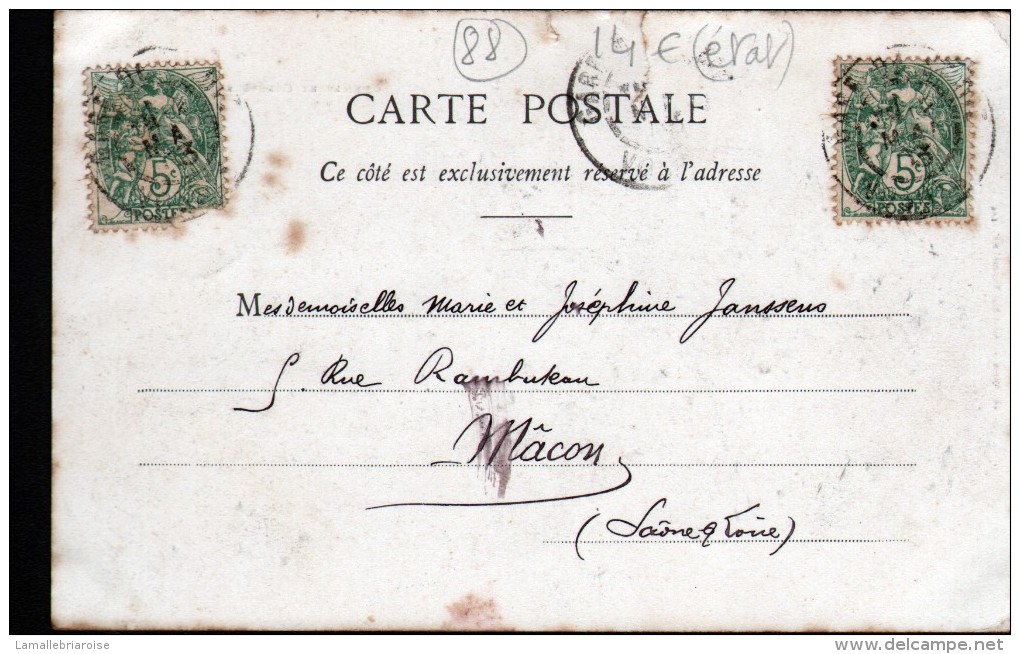 88
14 € (état)
CARTE POSTALE
Ce côté est exclusivement réservé à l'adresse
5c
POSTES
5c
POSTES
Mesdemoiselles Marie et Joséphine Janssens
5. Rue Rambuteau
Mâcon
(Saône & Loire)
Lamallebriaroise
www.delcampe.net